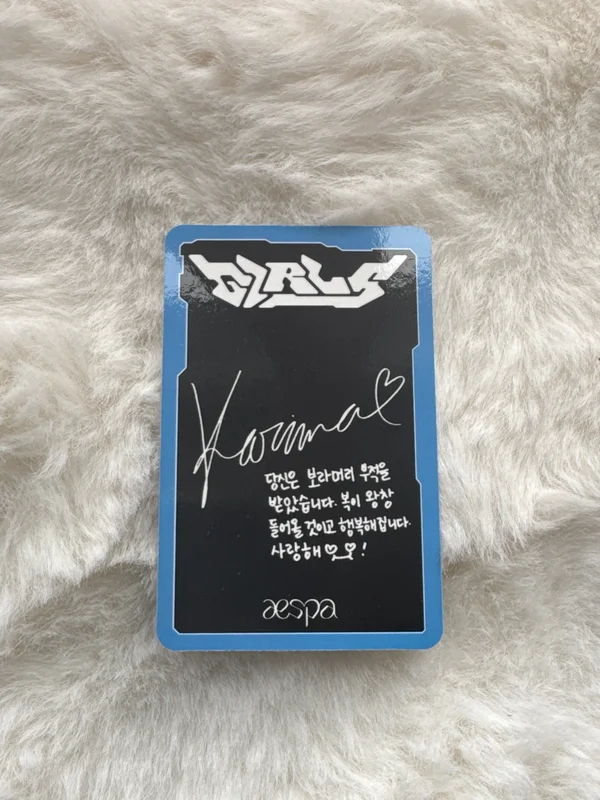 GIRLS
Karina♡
당신은 보라머리 부적을
받았습니다. 복이 왕창
들어올 것이고 행복해집니다.
사랑해 ♡_♡!
aespa